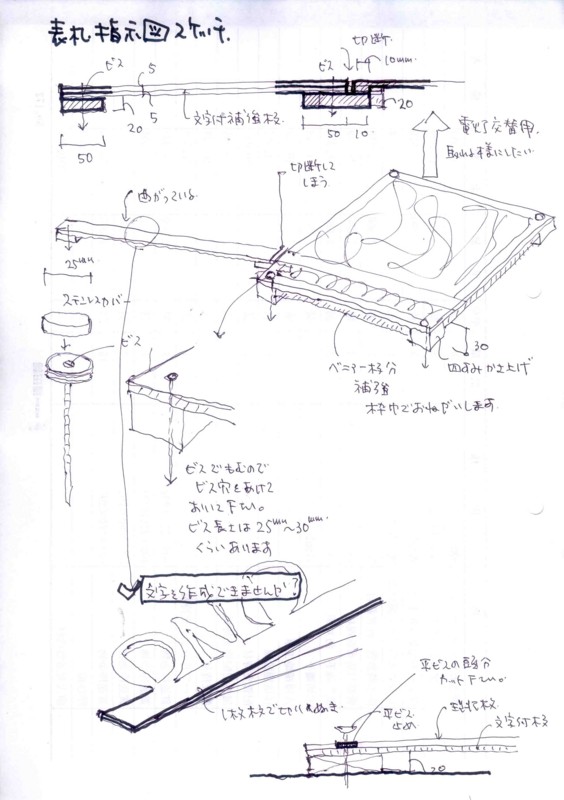 表札指示図スケッチ.
切断.
10mm
ビス
5
ビス
20
5
20
文字付補強板
50
50
10
電灯交替用.
取れる様にしたい
曲がっている
切断して
しまう
25mm
ステンレスカバー
ビス
30
四すみかさ上げ
ベニアー板分
補強
枠巾でおねがいします.
ビスでもむので
ビス穴をあけて
おいて下さい。
ビス長さは25mm〜30mm.
くらいあります
文字を作成できませんか?
1枚板で切りぬき
平ビスの頭分
カット下さい。
平ビス
止め
文字付板
20